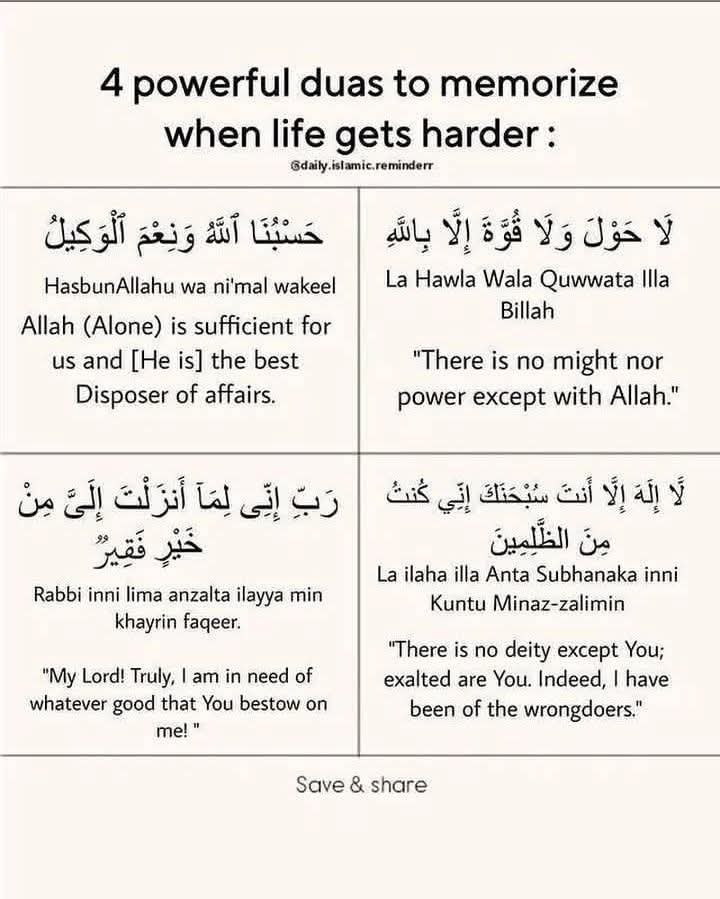 4 powerful duas to memorize
when life gets harder :
@daily.islamic.reminderr
حَسْبُنَا ٱللَّهُ وَنِعْمَ ٱلْوَكِيلُ
HasbunAllahu wa ni'mal wakeel
Allah (Alone) is sufficient for
us and [He is] the best
Disposer of affairs.
لَا حَوْلَ وَلَا قُوَّةَ إِلَّا بِاللَّهِ
La Hawla Wala Quwwata Illa
Billah
"There is no might nor
power except with Allah."
رَبِّ إِنِّى لِمَآ أَنزَلْتَ إِلَىَّ مِنْ
خَيْرٍ فَقِيرٌ
Rabbi inni lima anzalta ilayya min
khayrin faqeer.
"My Lord! Truly, I am in need of
whatever good that You bestow on
me! "
لَّا إِلَهَ إِلَّا أَنتَ سُبْحَنَكَ إِنِّي كُنتُ
مِنَ الظَّلِمِينَ
La ilaha illa Anta Subhanaka inni
Kuntu Minaz-zalimin
"There is no deity except You;
exalted are You. Indeed, I have
been of the wrongdoers."
Save & share